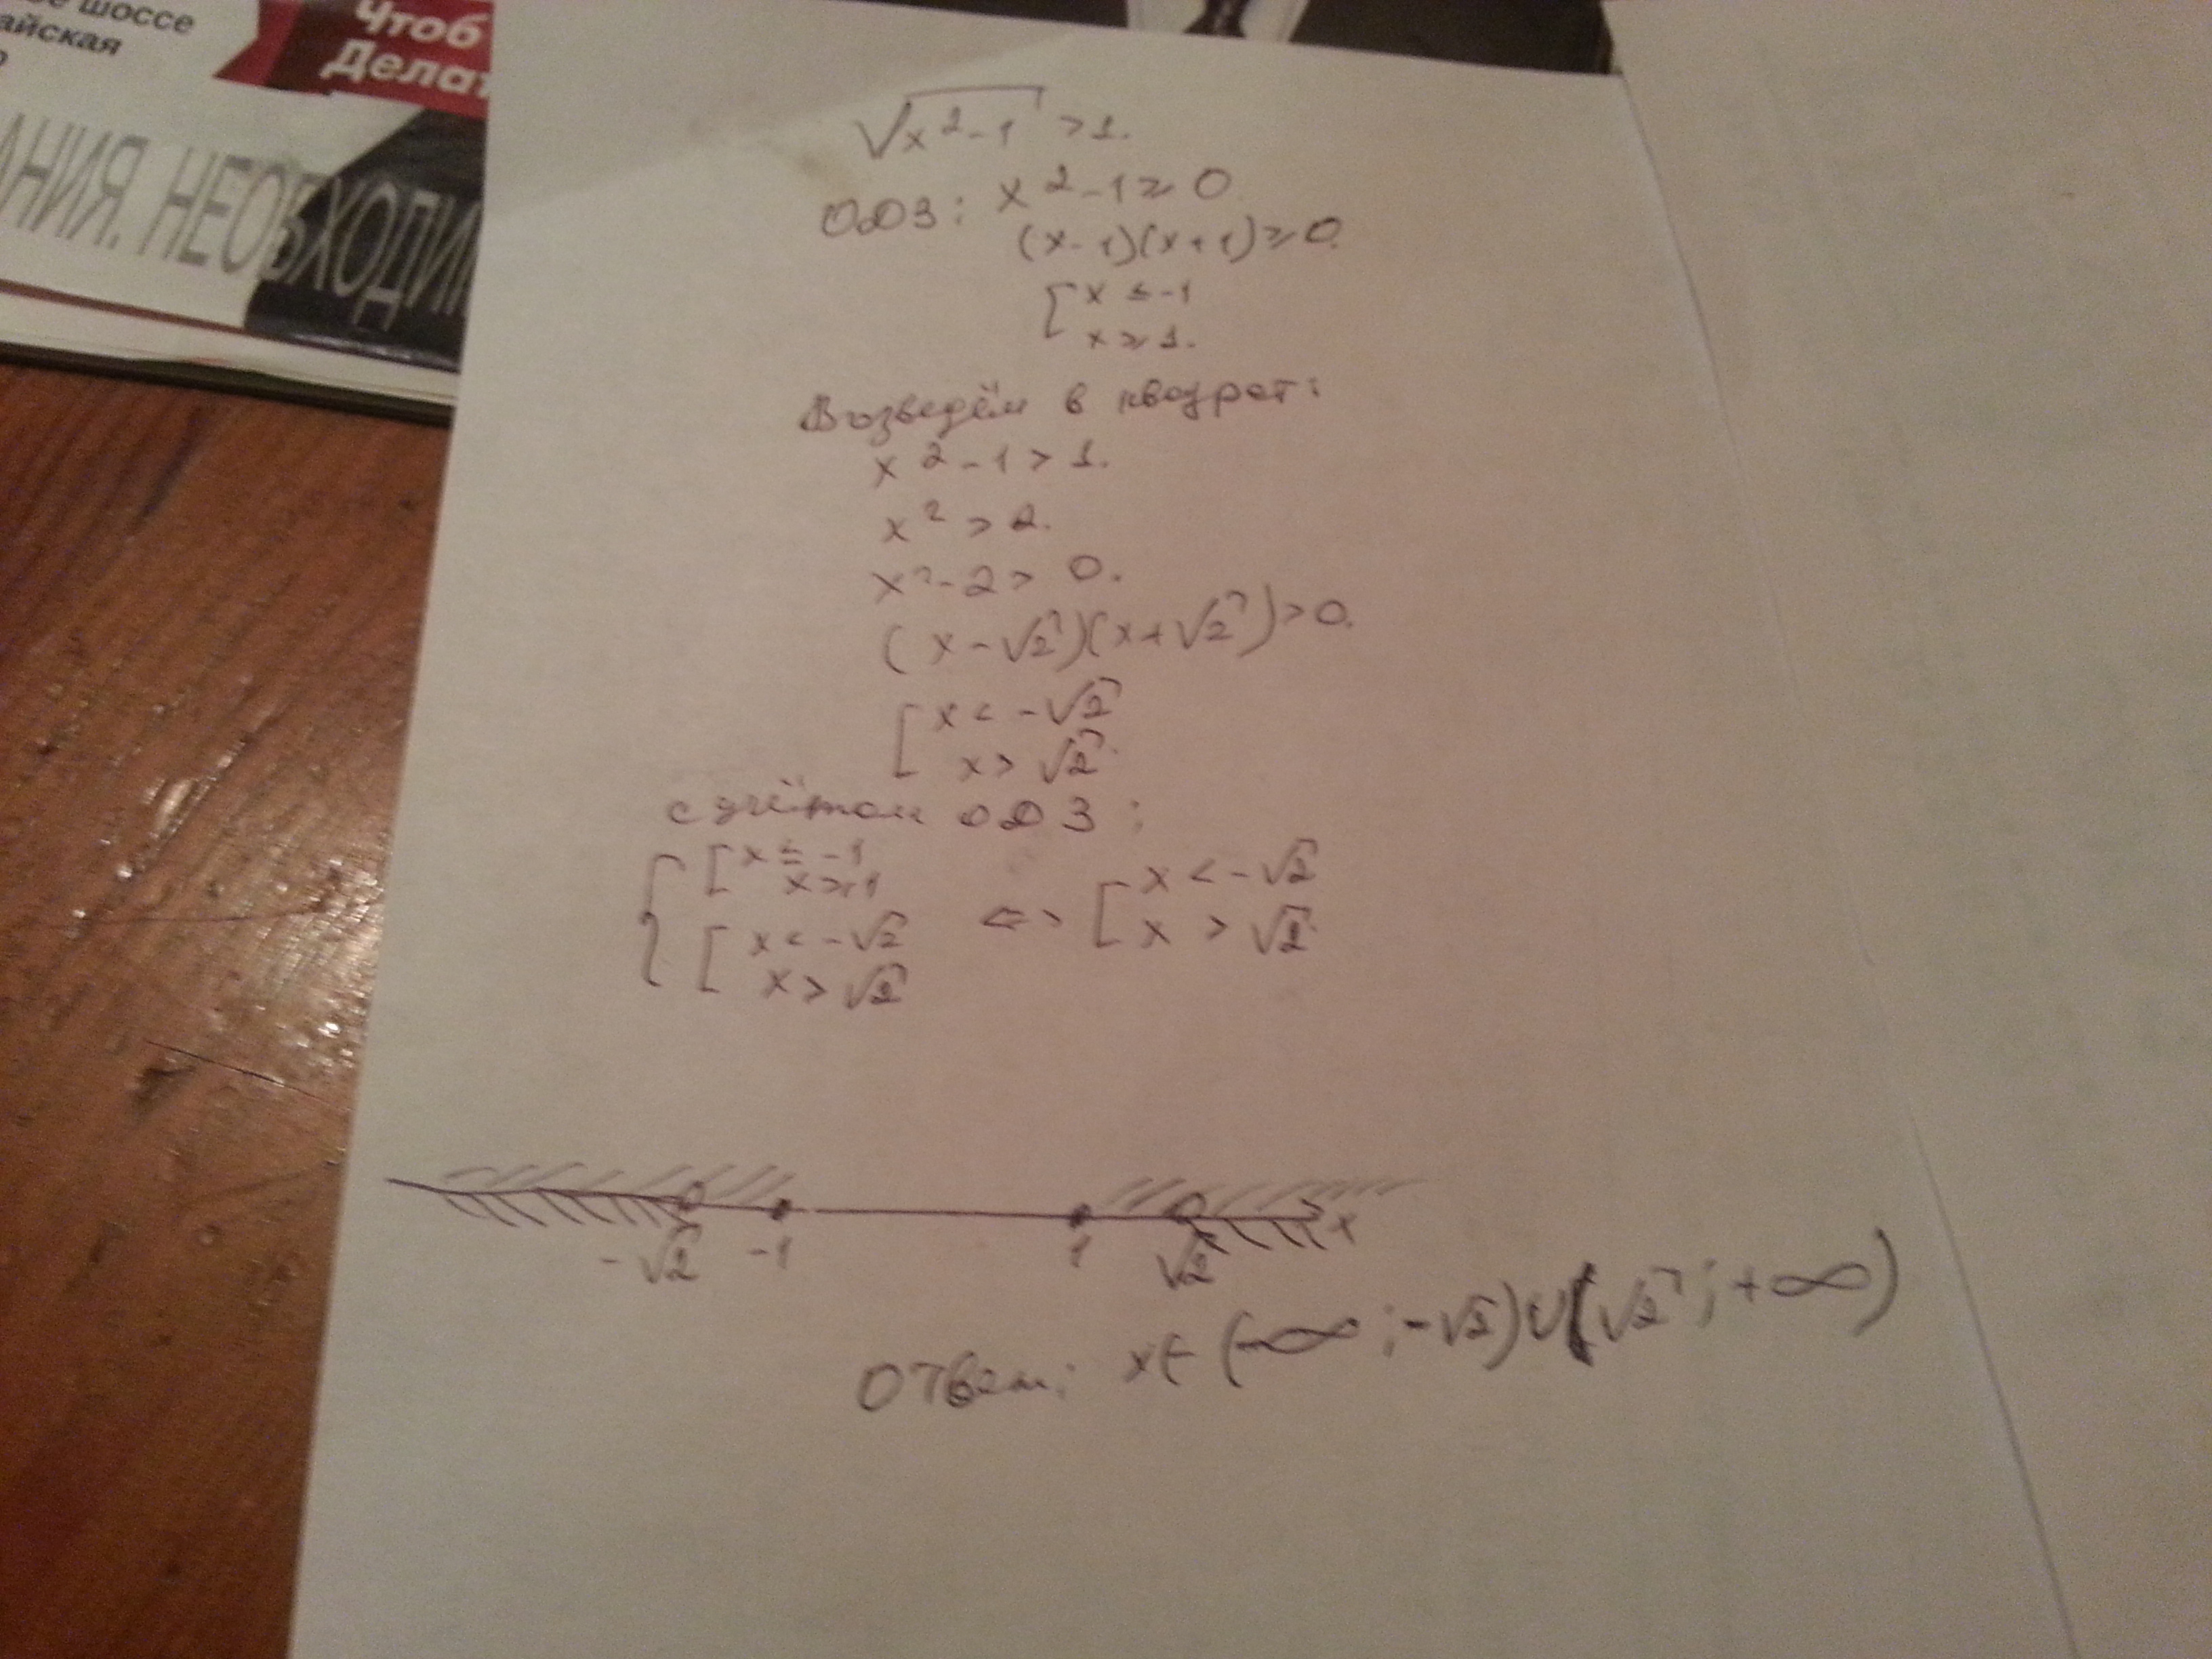 шоссе
айская
Чтоб
Делат
АНИЯ. НЕОБХОДИМ
√x²-1 > 1.
ОДЗ: x²-1 ≥ 0
(x-1)(x+1) ≥ 0.
[ x ≤ -1
x ≥ 1.
Возведём в квадрат:
x²-1 > 1.
x² > 2.
x²-2 > 0.
(x-√2)(x+√2) > 0.
[ x < -√2
x > √2.
с учётом ОДЗ:
{ [ x ≤ -1
x ≥ 1
[ x < -√2
x > √2
<=> [ x < -√2
x > √2.
-√2 -1 1 √2 x
Ответ: x ∈ (-∞; -√2) ∪ (√2; +∞)